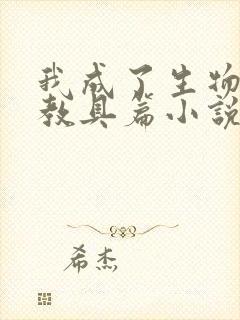 我成了生物
教具篇小說
希杰